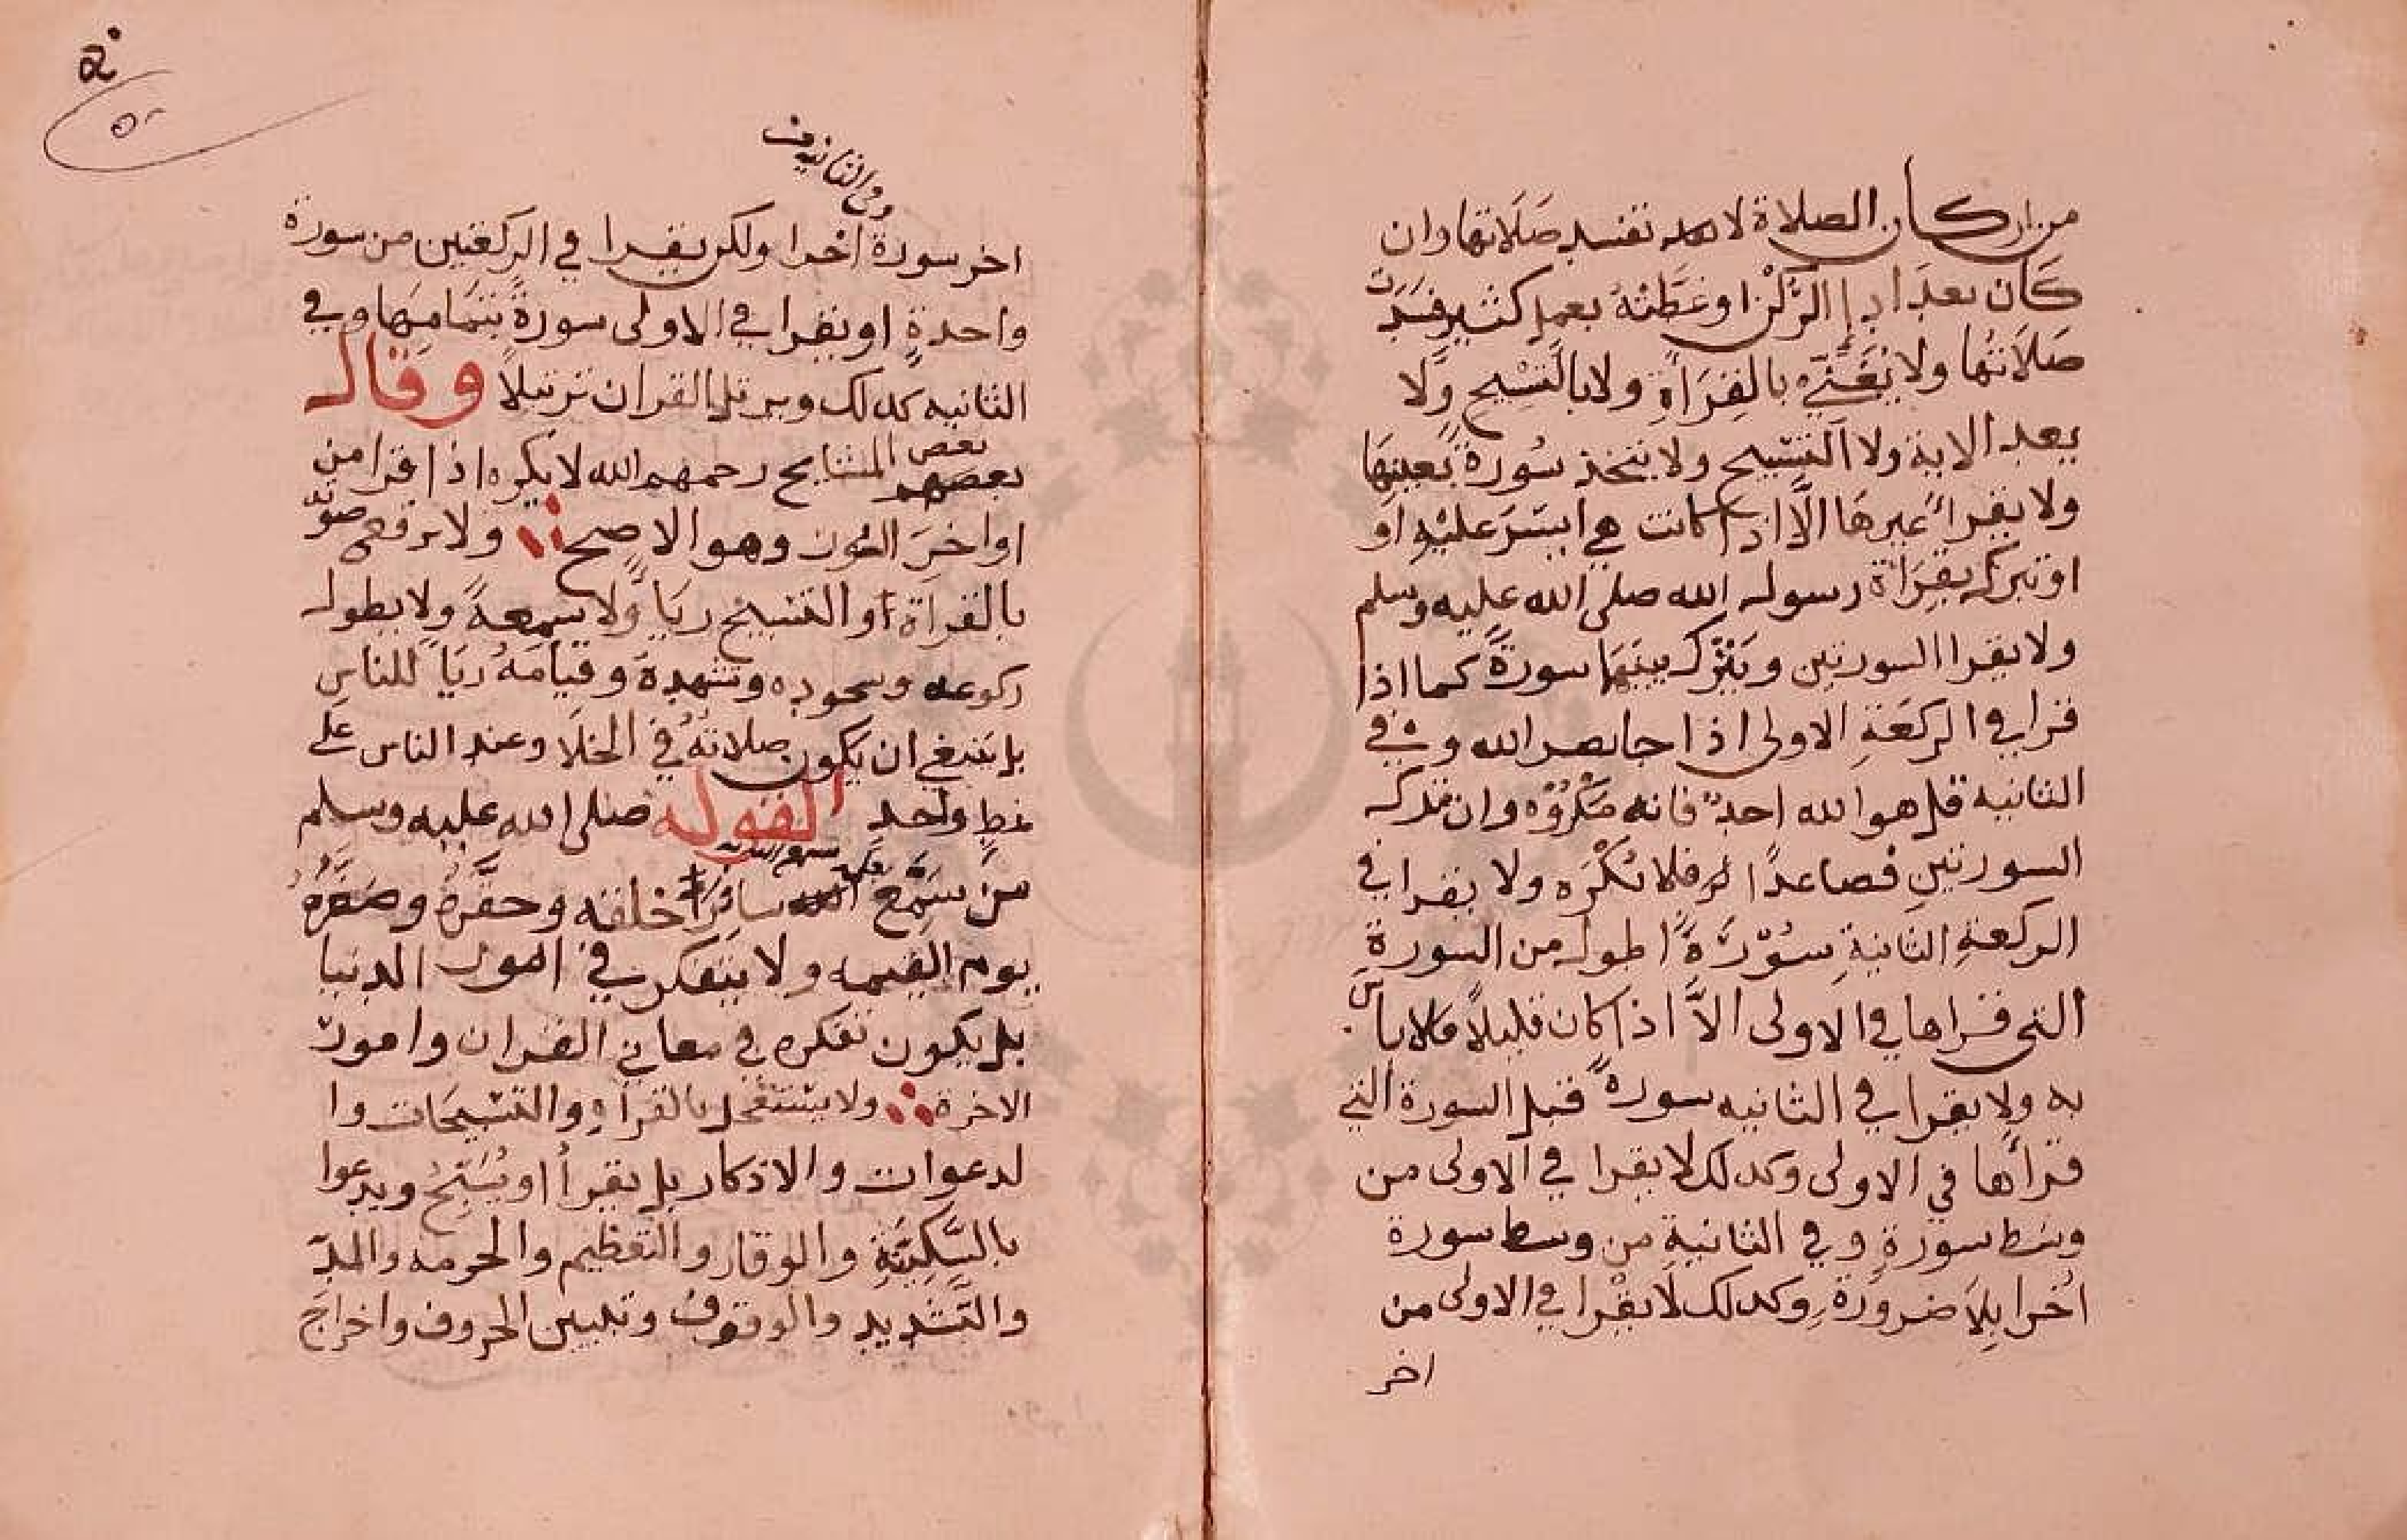 من اركان الصلاة لا تفسد صَلَاتها وان
كَان بعدَ ادإ الرُّكْن او غَطَّتْهُ بعمل كثيرٍ فسَدَت
صَلَاتُها ولا يُغَنّي بالقِرَأةِ ولا بالتَّسْبيح وَلَا
يعد الاية ولا التَّسْبيح ولا يتخذ سُورةً بعينِهَا
ولا يقرأ غيرهَا الَّا اذا كانت هي ايسَرَ عليْهِ اَو
او تبرك بقِرَاةِ رسول الله صلى الله عليه وسلم
ولا يقرا السورتين ويَتْرك بينهَما سورةً كما اذا
قرا في الركعَةِ الاولى اذا جا نصر الله وفي
الثانيه قل هو الله احدٌ فانه مَكْرُوْه وان ترك
السورتين فصاعدًا فلا تكْرَه ولا يقرا في
الركعةِ الثانيةِ سُوْرَةً اطول من السورة
التي قراها في الاولى الاَّ اذا كان قليلاً فلا باس
به ولا يقرا في الثانيه سورةً قبل السورة التي
قرأها في الاولى وكدلك لا يقرا في الاولى من
وسط سورةٍ وفي الثانيةِ من وسط سورة
اُخرا بِلَا ضرورَة وكدلك لَا يقْرا في الاولى من
اخر
٥٠
وفي الثانيه من
اخر سورة اُخرا ولكن يقرا في الركعتين من سورة
واحدةٍ او يقرا في الاولى سورةً بتمَامِهَا وفي
الثانيه كدلك ويرتل القران ترتيلاً وقال
بعض المشايخ رحمهم الله لا يكره اذا قرا من
اواخرَ السُّوَر وهو الاصح ولا يرفع صوته
بالقراة او التسْبيح ريَا وَّلا سُمعةً ولا يطول
ركوعه وسجوده وتشهدهَ وقيامَهُ ريَا للناس
بل ينبغي ان يكون صلاتهُ في الخلا وعند الناس على
نمطٍ واحدٍ القوله صلى الله عليه وسلم
من سَمَّعَ سائرَ خلقه وحقَّرَهُ وصغَّرَهُ
يوم القيمه ولا يتفكر في امور الدنيا
بل يكون تفكره في معاني القران وامور
الاخرة ولا يستعجل بالقرأة والتسْبيحَات وا
لدعوات والاذكار بل يقرأ او يُسَبّحُ ويدعوا
بالسَّكِينَةِ والوقار والتعظيم والحرمه والمدّ
والتَّشديد والوقوف وتبيين الحروف واخراجَ